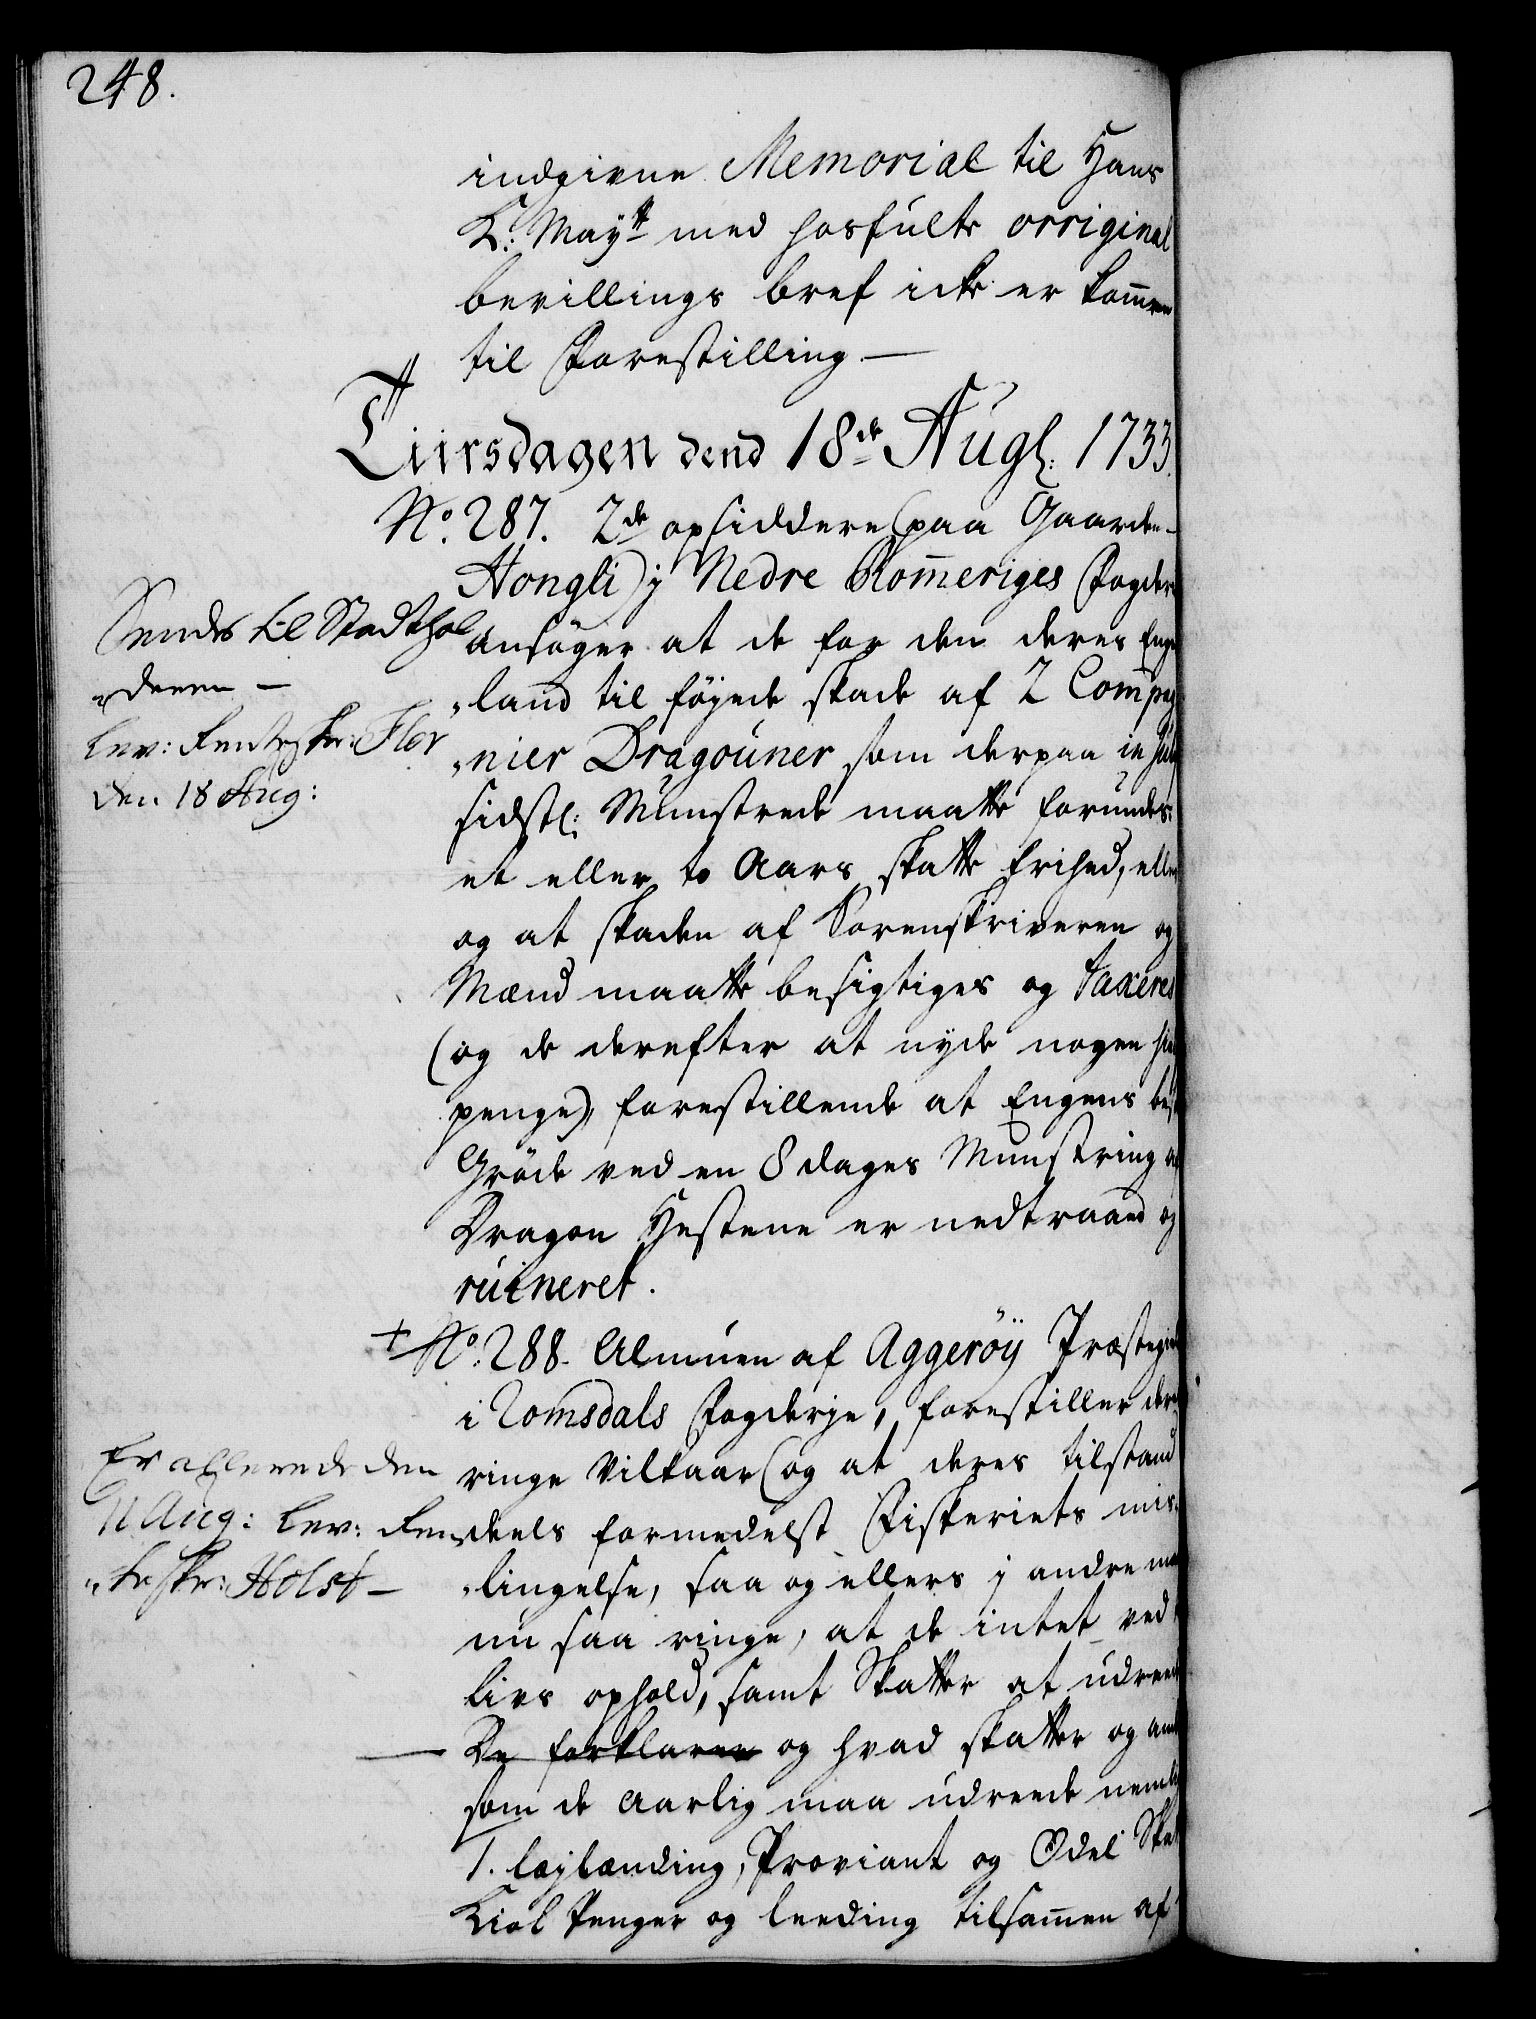 248.
indgivne Memorial til Hans
K: Mayt med hosfulte orriginal
bevillings bref icke er kommen
til Forestilling —
Tiirsdagen dend 18de Augl: 1733.
No. 287. 2de opsiddere (paa Gaarden
Hongli) j Nedre Rommeriges Fogderi
ansöger at de for den deres Enge
„land til föyede skade af 2 Compag
„nier Dragouner som derpaa in July
sidstl: Munstrede maatte forundes
et eller to Aars skatte frihed, eller
og at skaden af Sorenskriveren og
Mænd maatte besigtiges og taxeres
(og de derefter at nyde nogen
penge), forestillende at Engens beste
Gröde ved en 8 dages Munstring af
Dragon Hestene er nedtraaed og
ruineret.
Sendes til Stadthol
„deren —
Lev: Renteskr: Flor
den 18 Aug:
+ No. 288. Almuen af Aggeröy Præstegield
i Romsdals Fogderje, forestiller deres
ringe Vilkaar (og at deres tilstand
deels formedelst Fiskeriets mis
„lingelse, saa og ellers j andre
nu saa ringe, at de intet ved
livs ophold, samt Skatter at udreede
— De forklarer og hvad skatter og
som de Aarlig maa udreede nemlig
1. Leylænding, Proviant og Odel Skat
Kiol Penger og leeding tilsammen af
Er allerede den
11 Aug: Lev: Ren
„teskr: Holst —